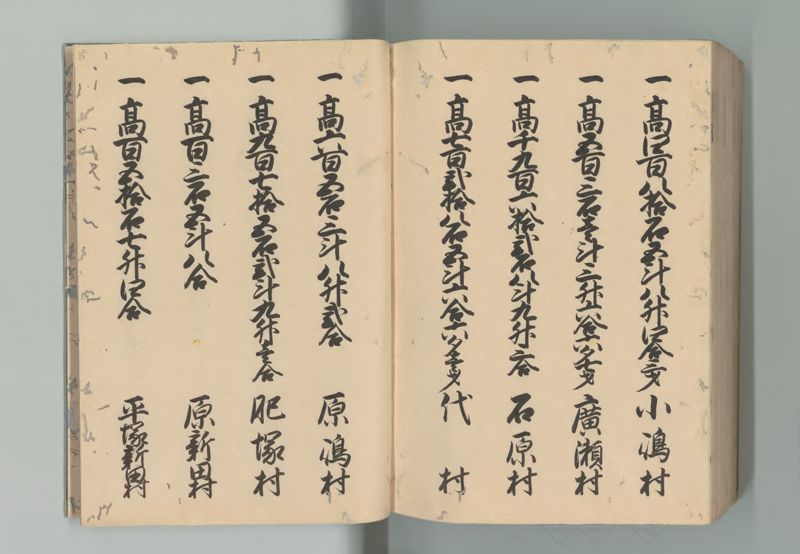 一 高四百八拾石五斗八升四合三才 小嶋村
一 高五百三石壱斗三升六合六勺壱才 廣瀬村
一 高千九百六拾弐石八斗九升三合 石原村
一 高七百弐拾八石五斗六合六勺壱才 代村
一 高六百五石三斗八升弐合 原嶋村
一 高九百七拾五石弐斗九升壱合 肥塚村
一 高百三石五斗八合 原新田村
一 高百五拾石七升四合 平塚新田村